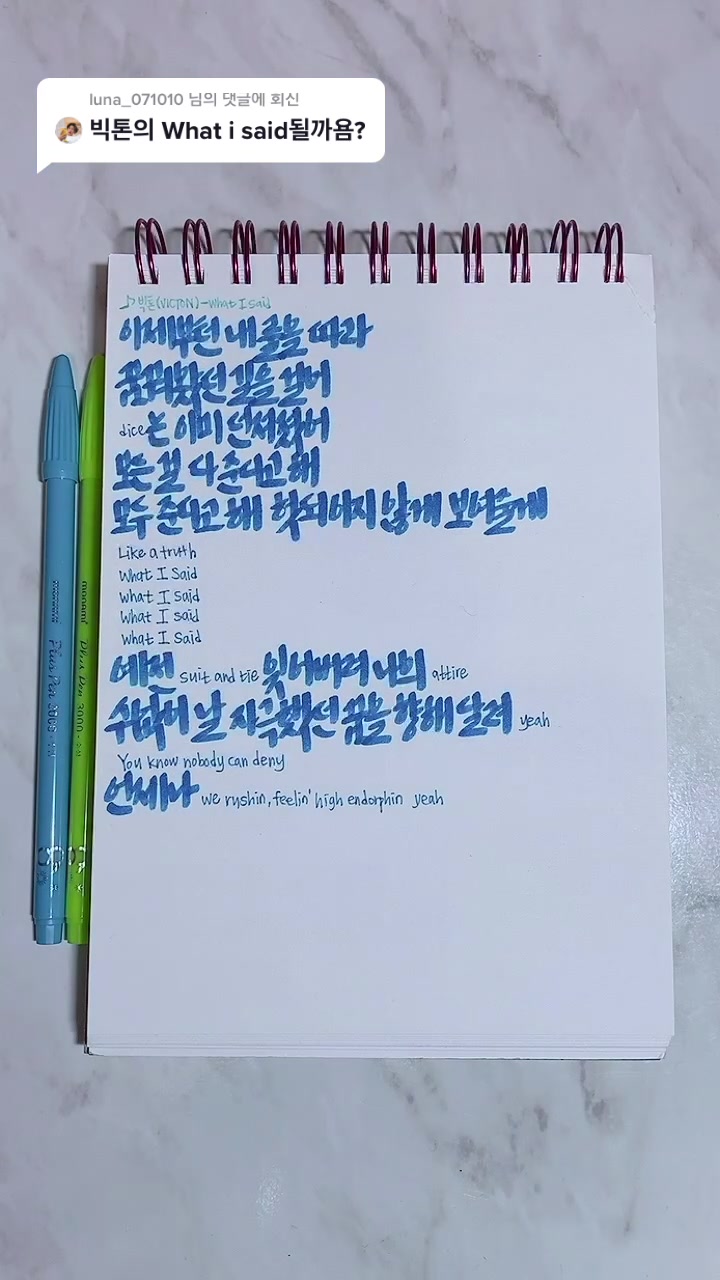 luna_071010 님의 댓글에 회신
빅톤의 What i said될까욤?
♪빅톤(VICTON)-What I Said
이제부턴 내 룰을 따라
꿈꿔왔던 길을 걸어
dice는 이미 던져졌어
모든 걸 다 준다고 해
모두 준다고 해 헛되이지 않게 보여줄게
Like a truth
What I Said
What I Said
What I Said
What I Said
예전 suit and tie 잊어버려 나의 attire
수없이 날 자극했던 꿈을 향해 달려 yeah
You know nobody can deny
언제나 we rushin, feelin' high endorphin yeah
monami Plus Pen 3000
monami Plus Pen 3000